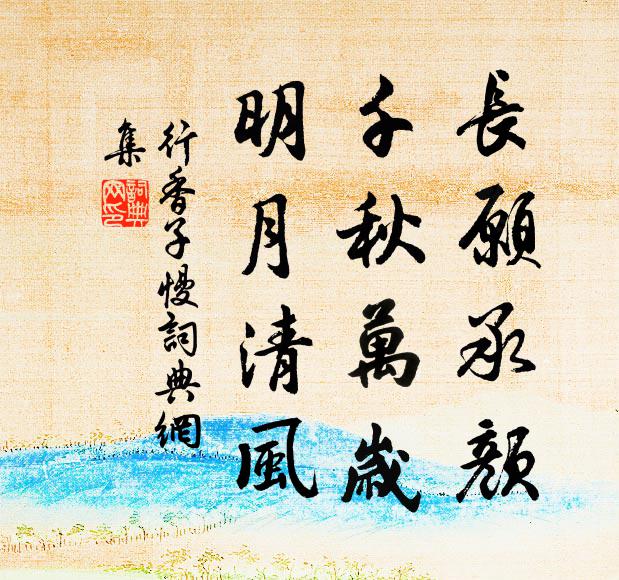 長願承顏
千秋萬歲
明月清風
行香子慢詞典網
集
詞典
网印